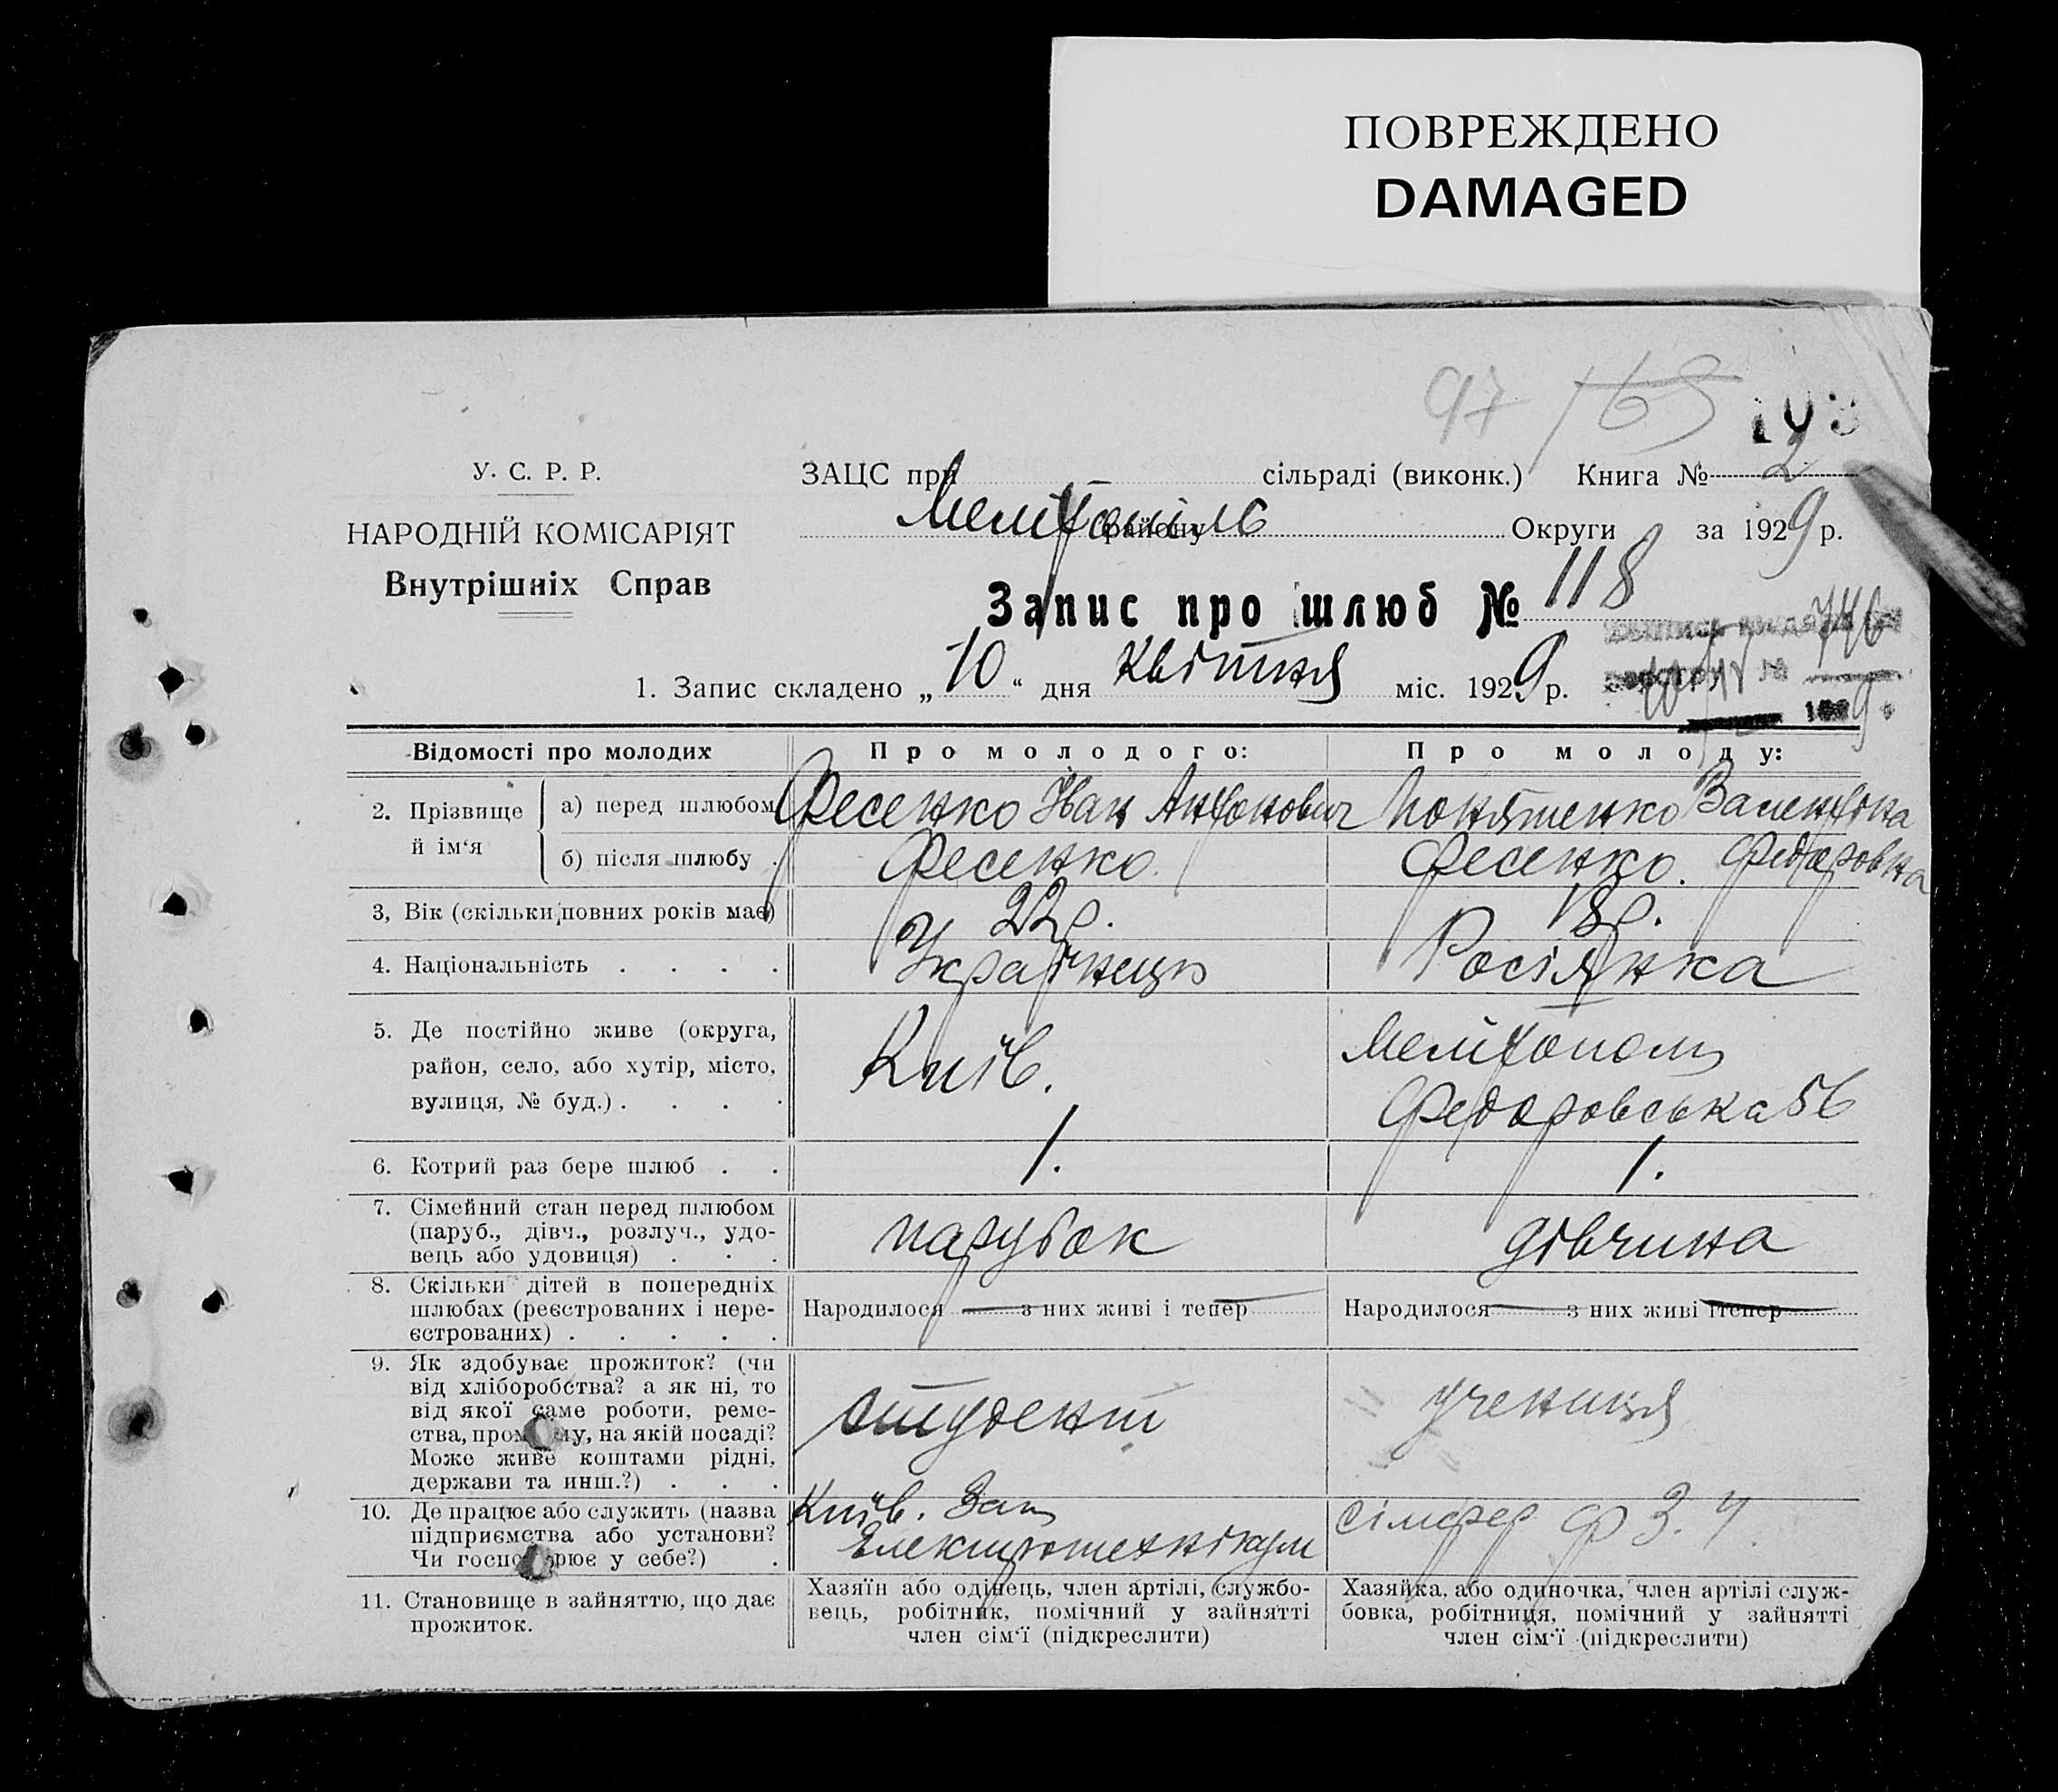 ПОВРЕЖДЕНО
DAMAGED
97 165
У. С. Р. Р.
НАРОДНІЙ КОМІСАРІЯТ
Внутрішніх Справ
ЗАЦС при сільраді (виконк.) Книга № 2
Мелітопіль району Округи за 1929 р.
Запис про шлюб № 118
746
1. Запис складено „10“ дня квітня міс. 1929 р.
Відомості про молодих Про молодого: Про молоду:
2. Прізвище й ім‘я
а) перед шлюбом Фесенко Іван Антонович Понятенко Валентіна Федоровна
б) після шлюбу . Фесенко. Фесенко.
3, Вік (скільки повних років має) 22 р. 18 р.
4. Національність . . . . Українець Росіянка
5. Де постійно живе (округа,
район, село, або хутір, місто,
вулиця, № буд.) . . . .
Київ.
Мелітополь
Федоровська 56
6. Котрий раз бере шлюб . . 1. 1.
7. Сімейний стан перед шлюбом
(паруб., дівч., розлуч., удо-
вець або удовиця) . . .
парубок
дівчина
8. Скільки дітей в попередніх
шлюбах (реєстрованих і нере-
єстрованих) . . . . .
Народилося — з них живі і тепер —
Народилося — з них живі і тепер —
9. Як здобуває прожиток? (чи
від хліборобства? а як ні, то
від якої саме роботи, реме-
ства, промислу, на якій посаді?
Може живе коштами рідні,
держави та инш.?) . . .
студент
учениця
10. Де працює або служить (назва
підприємства або установи?
Чи господарює у себе?) .
Київ. Зал
Електротехнікум
Сімфер ФЗУ
11. Становище в зайняттю, що дає
прожиток.
Хазяїн або одінець, член артілі, службо-
вець, робітник, помічний у зайнятті
член сім‘ї (підкреслити)
Хазяйка, або одиночка, член артілі служ-
бовка, робітниця, помічний у зайнятті
член сім‘ї (підкреслити)